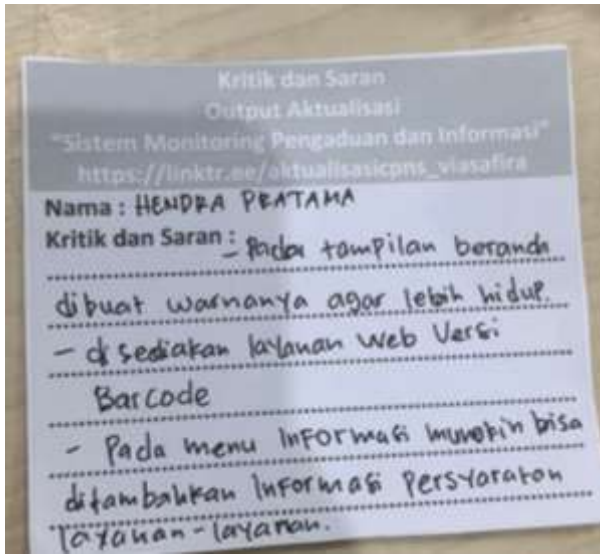 Kritik dan Saran
Output Aktualisasi
"Sistem Monitoring Pengaduan dan Informasi"
https://linktr.ee/aktualisasicpns_viasafira
Nama : HENDRA PRATAMA
Kritik dan Saran : - Pada tampilan berand
dibuat warnanya agar lebih hidup.
- disediakan layanan web Versi
Barcode
- Pada menu Informasi mungkin bisa
ditambahkan Informasi Persyaratan
layanan-layanan.